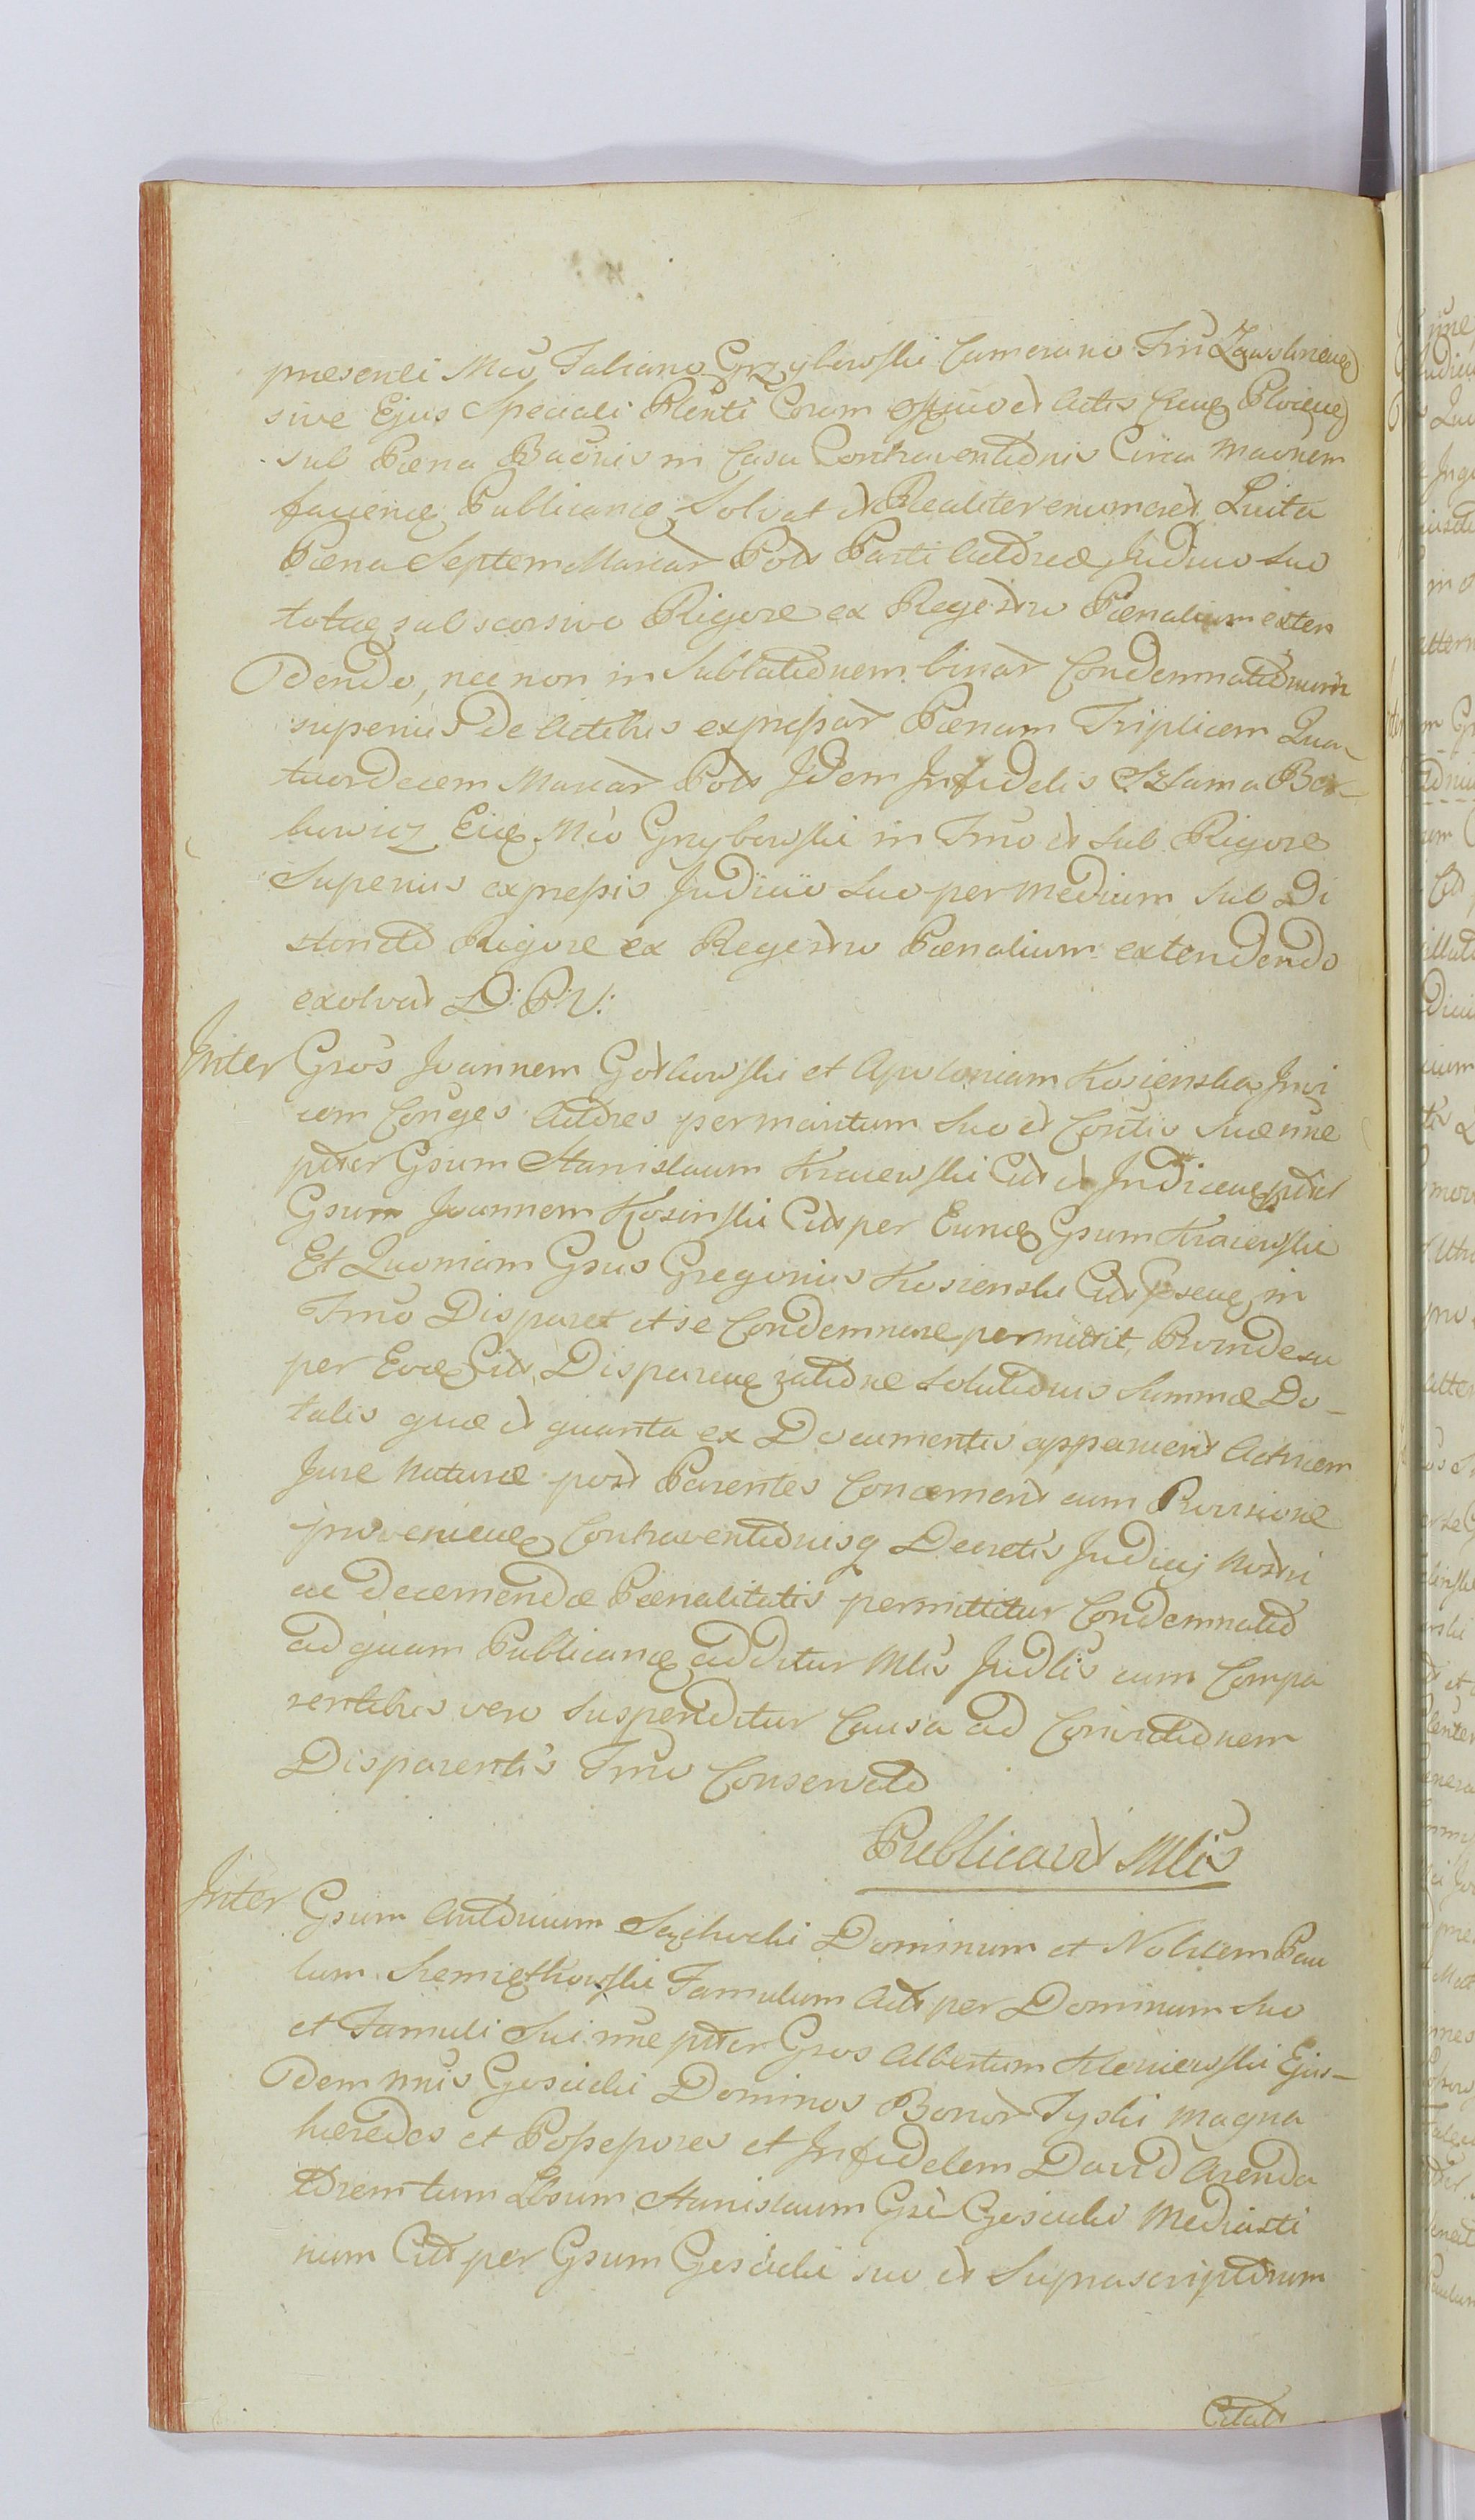 presenti Mco Fabiano Grzybowski Camerario Trrii Zawshnen
sive Ejus Speciali Plenti Coram officio et Actis Cas Plocen
sub Pæna Baõnis in Casu Contraventionis Circa maõnem
faciend Publicand Solvat et Realiter enumeret Luita
Pæna Septem Marcar Pols Parti Actoreæ Judicio suo
totae sub scorsivo Rigore ex Regestro Pænalium exten
dendo, nec non in Sublationem binar Condemnationum
superius de Actibus expressar Pænam Triplicem Qua-
tuordecem Marcar Pols Idem Infidelis Szlama Bor-
kowicz Eid Mco Grzybowski in Trno et sub Rigore
Superius expressis Judicio suo per medium sub Di
stincto Rigore ex Regestro Pænalium extendendo
exolvat D: P: V:
Inter Gsos Joannem Gotkowski et Apoloniam Kosienska Invi
cem Conges Actores per maritum Suo et Contis Suæ nne
pter Gsum Stanislaum Kraiewski Cit et Indicen
Gsum Joannem Kosinski Cit per Eund Gsum Kraiewski
Et Quoniam Gsus Gregorius Kosienski Cit in
Trno Disparet et se Condemnare permittit, Proinde su
per Eod Cit Disparen ratione solutionis Summæ Do-
talis quæ et quanta ex Documentis apparuerit Actricem
Jure Naturæ post Parentes Concernen cum Provisione
provenien Contraventionisq Decretis Judicij Nostri
ac decernendæ Pænalitatis permittitur Condemnatio
ad quam Publicand additur Mlis Judlis cum Compa
rentibus vero suspenditur Causa ad Convictionem
Disparentis Trno Conservato
Publicavit Mlis
Inter Gsum Antonium Dominum et Nobilem Pau
lum Famulum Act per Dominum suo
et Famuli Sui nne pter Gsos Albertum Ejus-
dem nnis Goscicki Dominos Bonor Tyski magna
hæredes et Possessores et Infidelem David Arenda
torem tum Lbsum Stanislaum Gsi Goscicki Mediasti
num Cit per Gsum Gościcki suo et Suprascriptorum
Citat